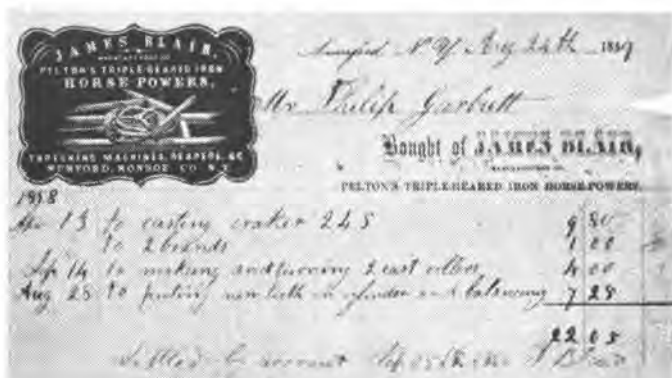 JAMES BLAIR,
MANUFACTURER OF
PELTON'S TRIPLE-GEARED IRON
HORSE-POWERS,
THRESHING MACHINES, REAPERS, &C
MUMFORD, MONROE CO. N.Y.
Mumford N Y Aug 24th 1859
Mr Philip Garbutt
Bought of JAMES BLAIR,
MANUFACTURER OF
PELTON'S TRIPLE-GEARED IRON HORSE-POWERS,
1858
Apr 13 to casting 245 9 80
to 2 bands 1 00
Sep 14 to making and turning 2 cast rollers 4 00
Aug 25 to puting new teeth in cylinder and balancing 7 25
22 05
Settled account Sep J Blair